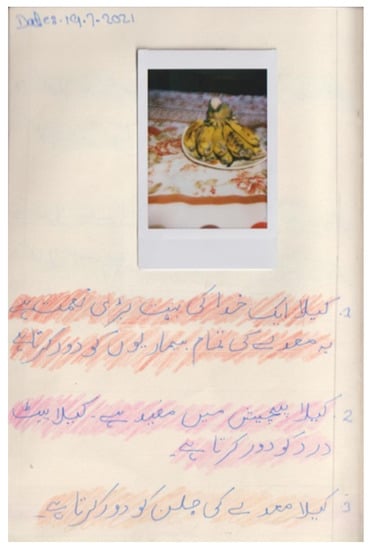 Dates. 19.7.2021
1. کیلا ایک خدا کی بہت بڑی نعمت ہے
یہ معدے کی تمام بیماریوں کو دور کرتا ہے
2 کیلا پیچیش میں مفید ہے۔ کیلا پیٹ
درد کو دور کرتا ہے۔
3 کیلا معدے کی جلن کو دور کرتا ہے۔